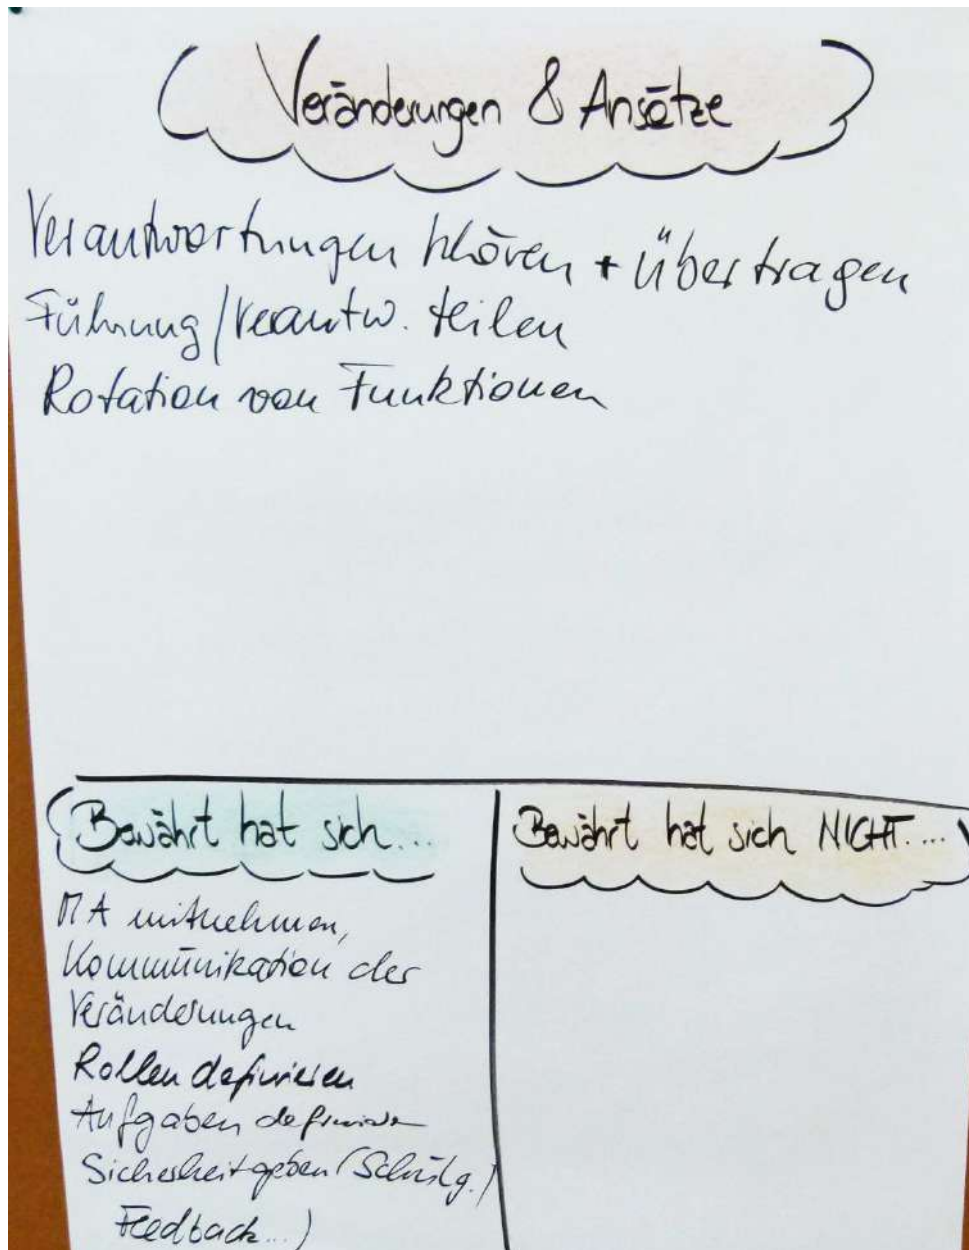 Veränderungen & Ansätze
Verantwortungen klären + Übertragen
Führung/Verantw. teilen
Rotation von Funktionen
Bewährt hat sich...
MA mitnehmen,
Kommunikation der
Veränderungen
Rollen definieren
Aufgaben definieren
Sicherheit geben (Schulg./
Feedback...)
Bewährt hat sich NICHT....